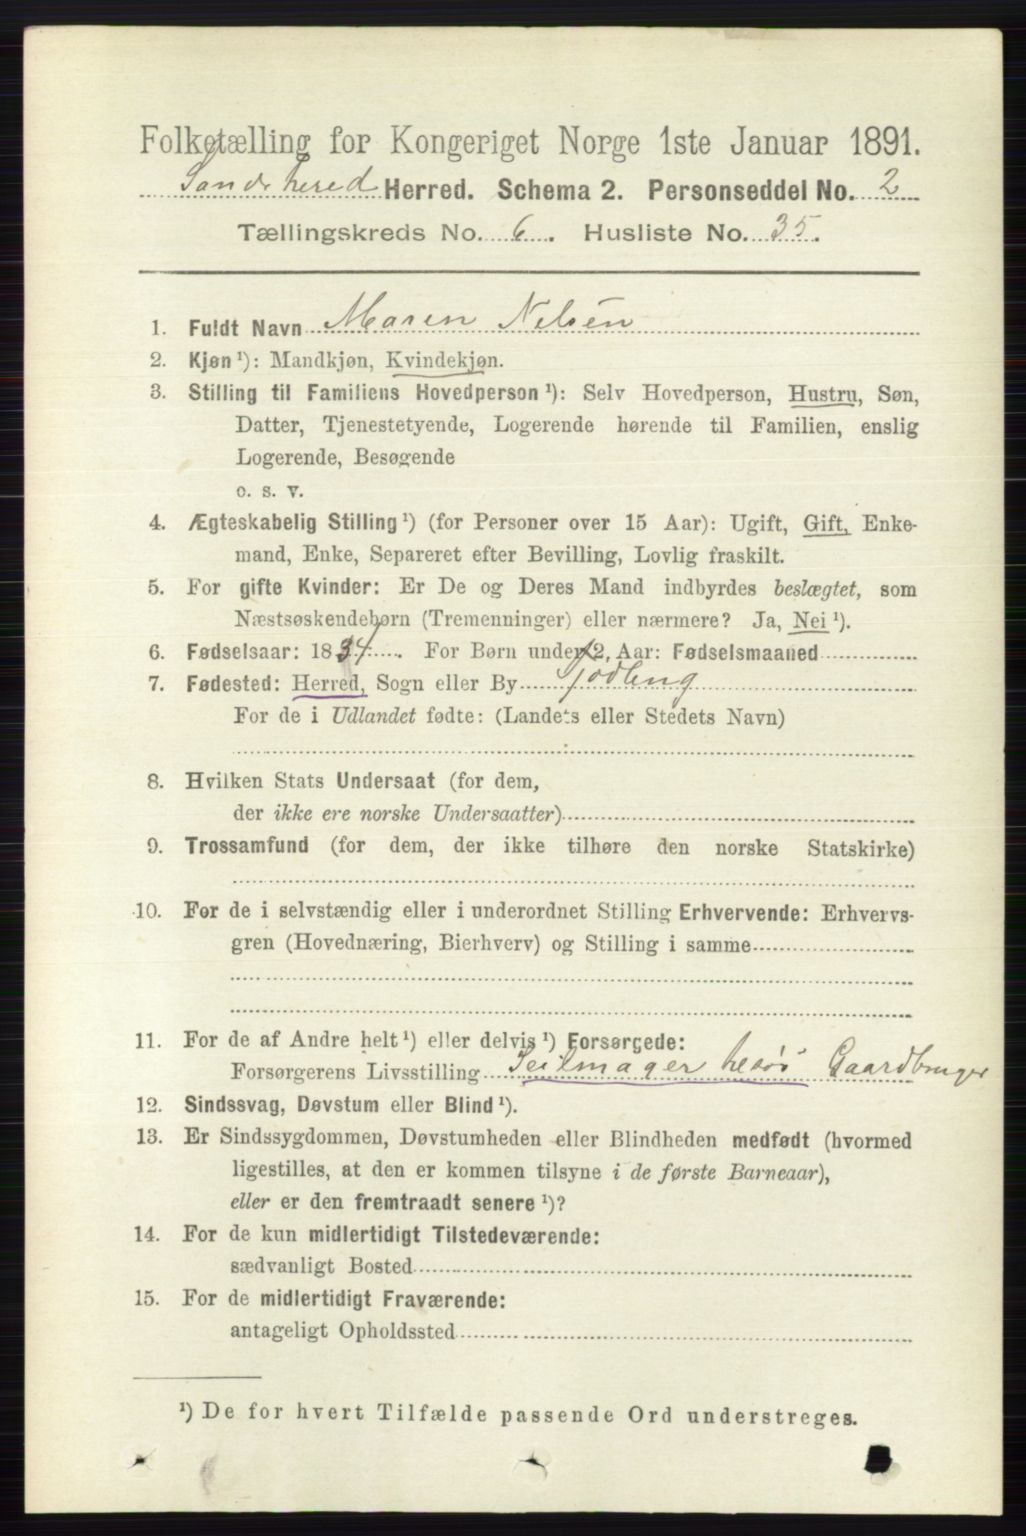 Folketælling for Kongeriget Norge 1ste Januar 1891.
Sandeherred Herred. Schema 2. Personseddel No. 2
Tællingskreds No. 6. Husliste No. 35.
1. Fuldt Navn Maren Nilsen
2. Kjøn ¹): Mandkjøn, Kvindekjøn.
3. Stilling til Familiens Hovedperson ¹): Selv Hovedperson, Hustru, Søn,
Datter, Tjenestetyende, Logerende hørende til Familien, enslig
Logerende, Besøgende
o. s. v.
4. Ægteskabelig Stilling ¹) (for Personer over 15 Aar): Ugift, Gift, Enke-
mand, Enke, Separeret efter Bevilling, Lovlig fraskilt.
5. For gifte Kvinder: Er De og Deres Mand indbyrdes beslægtet, som
Næstsøskendebørn (Tremenninger) eller nærmere? Ja, Nei ¹).
6. Fødselsaar: 1834. For Børn under 2 Aar: Fødselsmaaned
7. Fødested: Herred, Sogn eller By Tjødling
For de i Udlandet fødte: (Landets eller Stedets Navn)
8. Hvilken Stats Undersaat (for dem,
der ikke ere norske Undersaatter)
9. Trossamfund (for dem, der ikke tilhøre den norske Statskirke)
10. For de i selvstændig eller i underordnet Stilling Erhvervende: Erhvervs-
gren (Hovednæring, Bierhverv) og Stilling i samme
11. For de af Andre helt ¹) eller delvis ¹) Forsørgede:
Forsørgerens Livsstilling Seilmager Gaardbruger
12. Sindssvag, Døvstum eller Blind ¹).
13. Er Sindssygdommen, Døvstumheden eller Blindheden medfødt (hvormed
ligestilles, at den er kommen tilsyne i de første Barneaar),
eller er den fremtraadt senere ¹)?
14. For de kun midlertidigt Tilstedeværende:
sædvanligt Bosted
15. For de midlertidigt Fraværende:
antageligt Opholdssted
¹) De for hvert Tilfælde passende Ord understreges.